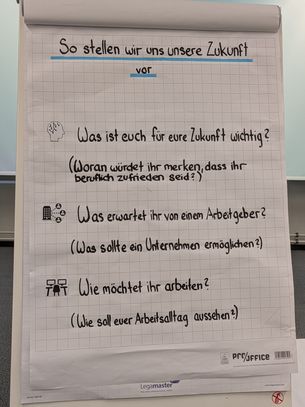 So stellen wir uns unsere Zukunft
vor
Was ist euch für eure Zukunft wichtig?
(Woran würdet ihr merken, dass ihr
beruflich zufrieden seid?)
Was erwartet ihr von einem Arbeitgeber?
(Was sollte ein Unternehmen ermöglichen?)
Wie möchtet ihr arbeiten?
(Wie soll euer Arbeitsalltag aussehen?)
pro/office
Legamaster